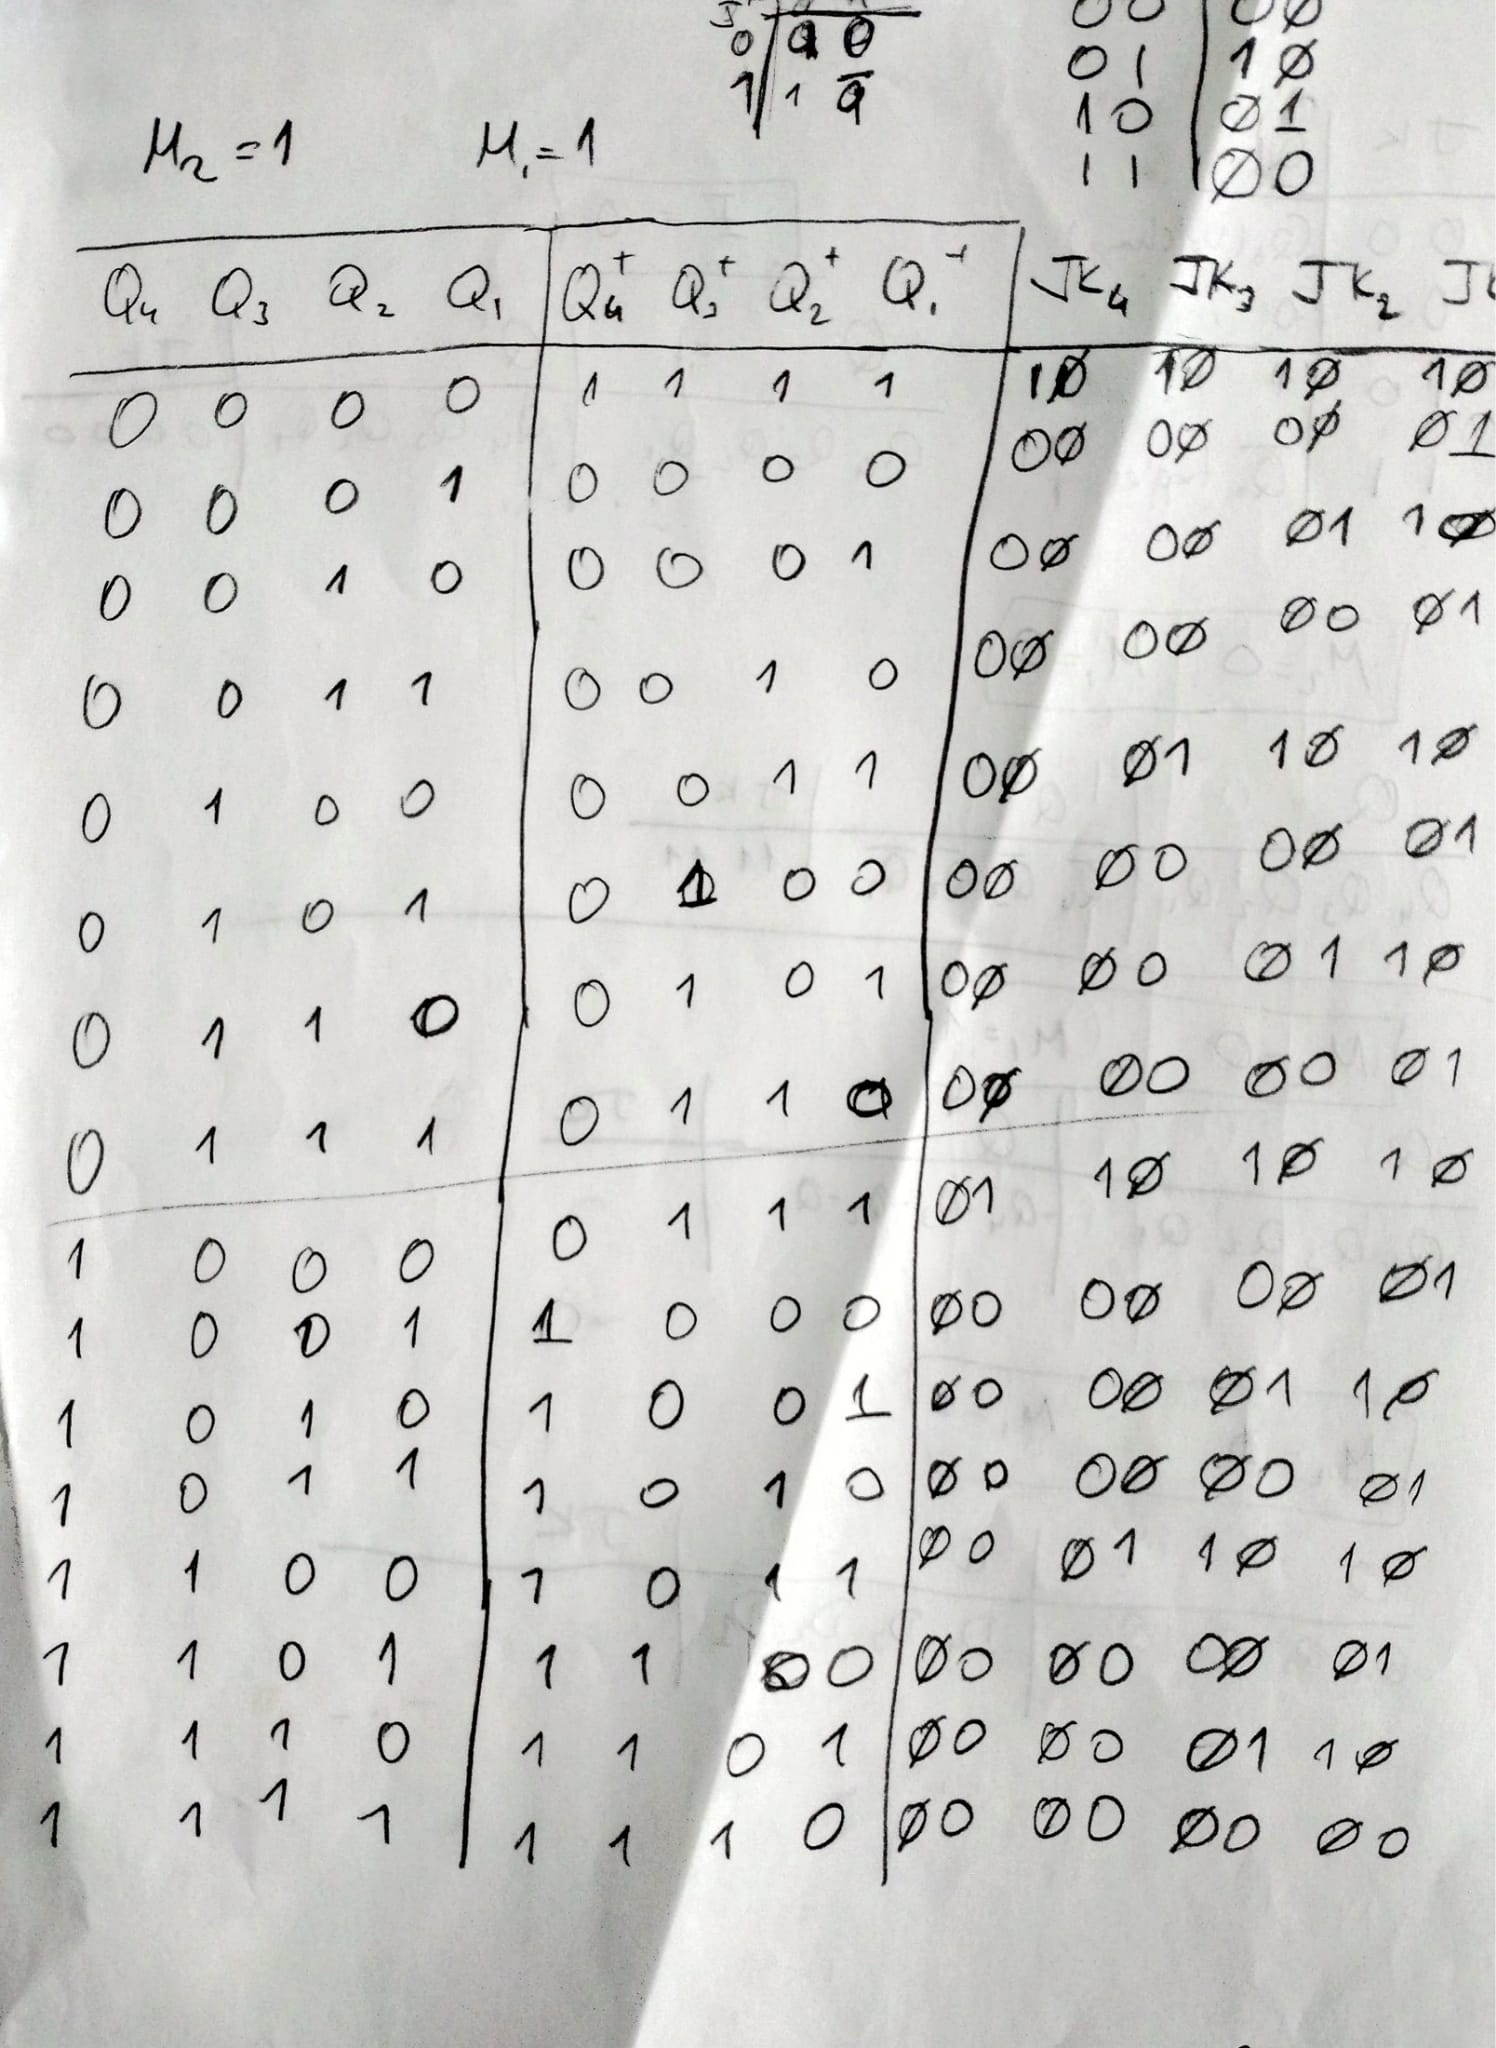 0 Q 0 00 0Ø
1 1 Q̅ 01 1Ø
10 Ø1
M₂ = 1 M₁ = 1 11 Ø0
Q₄ Q₃ Q₂ Q₁ Q₄⁺ Q₃⁺ Q₂⁺ Q₁⁺ JK₄ JK₃ JK₂ JK
0 0 0 0 1 1 1 1 1Ø 1Ø 1Ø 1Ø
0 0 0 1 0 0 0 0 0Ø 0Ø 0Ø Ø1
0 0 1 0 0 0 0 1 0Ø 0Ø Ø1 1Ø
0 0 1 1 0 0 1 0 0Ø 0Ø Ø0 Ø1
0 1 0 0 0 0 1 1 0Ø Ø1 1Ø 1Ø
0 1 0 1 0 1 0 0 0Ø Ø0 0Ø Ø1
0 1 1 0 0 1 0 1 0Ø Ø0 Ø1 1Ø
0 1 1 1 0 1 1 0 0Ø Ø0 Ø0 Ø1
1 0 0 0 0 1 1 1 Ø1 1Ø 1Ø 1Ø
1 0 0 1 1 0 0 0 Ø0 0Ø 0Ø Ø1
1 0 1 0 1 0 0 1 Ø0 0Ø Ø1 1Ø
1 0 1 1 1 0 1 0 Ø0 0Ø Ø0 Ø1
1 1 0 0 1 0 1 1 Ø0 Ø1 1Ø 1Ø
1 1 0 1 1 1 0 0 Ø0 Ø0 0Ø Ø1
1 1 1 0 1 1 0 1 Ø0 Ø0 Ø1 1Ø
1 1 1 1 1 1 1 0 Ø0 Ø0 Ø0 Ø0